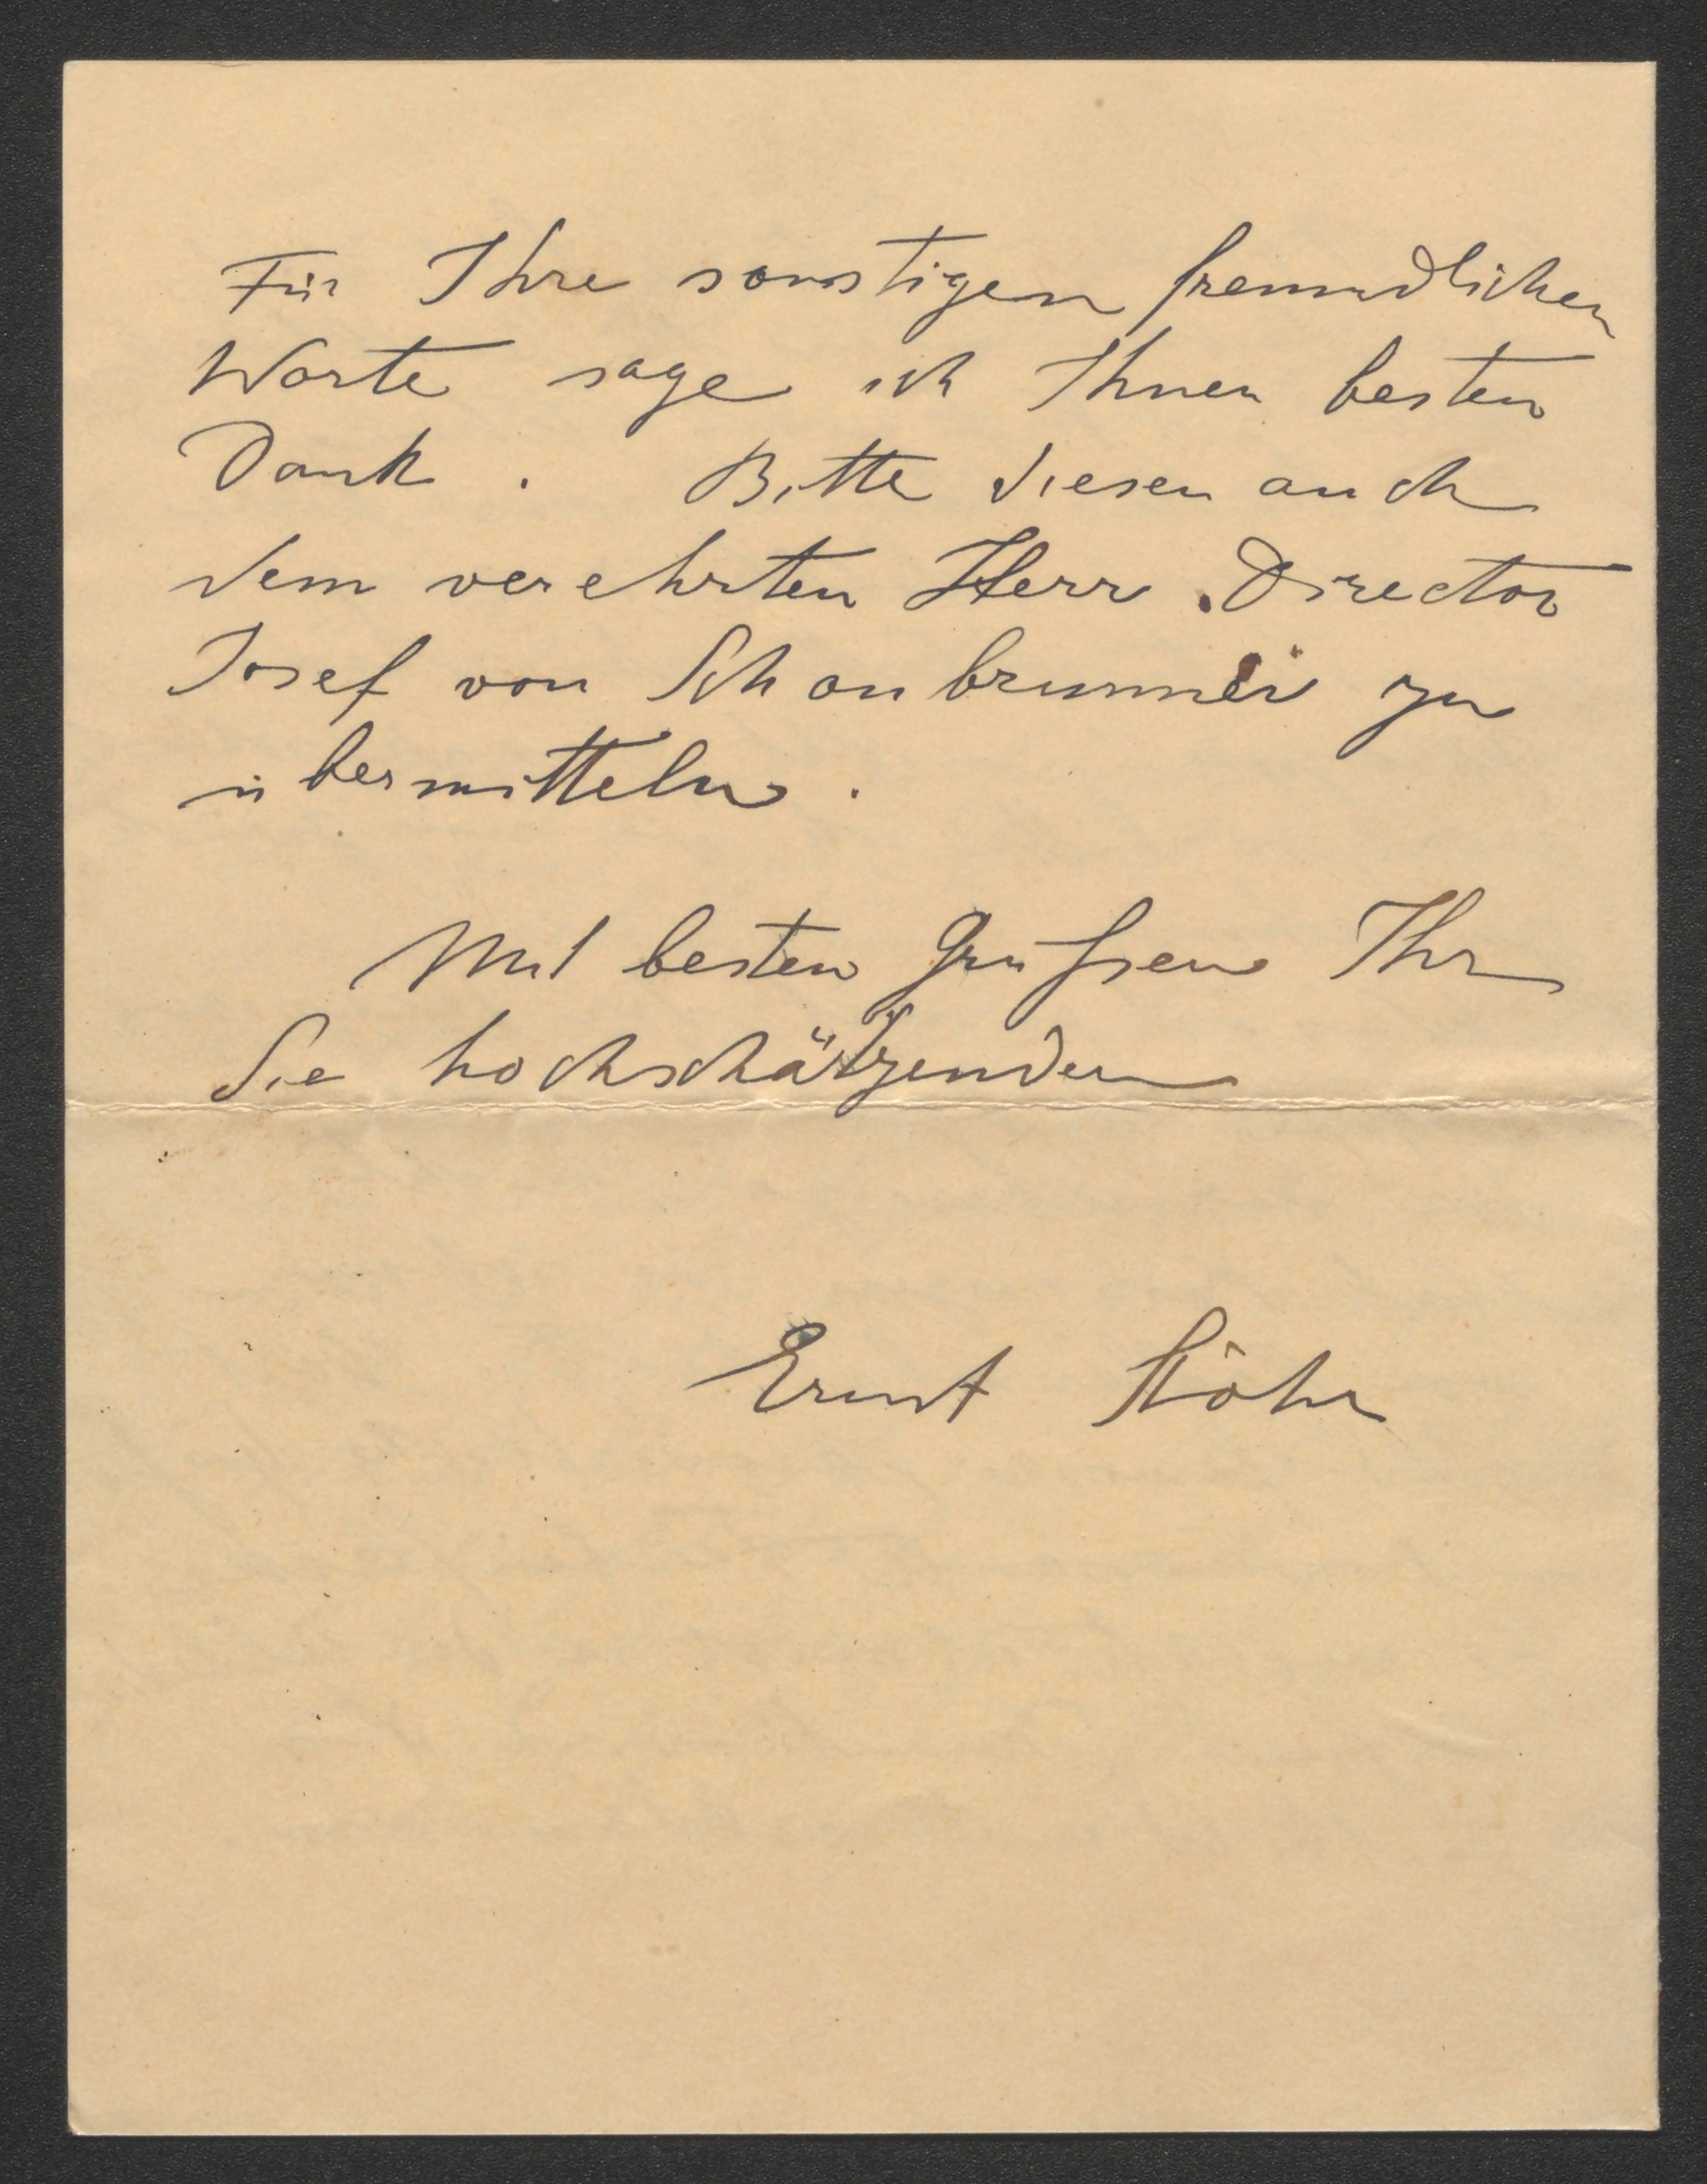 Für Ihre sonstigen freundlichen
Worte sage ich Ihnen besten
Dank. Bitte diesen auch
dem verehrten Herr Director
Josef von Schonbrunner zu
übermitteln.
Mit besten Grüßen Ihr
Sie hochschätzender
Ernst Stöhr